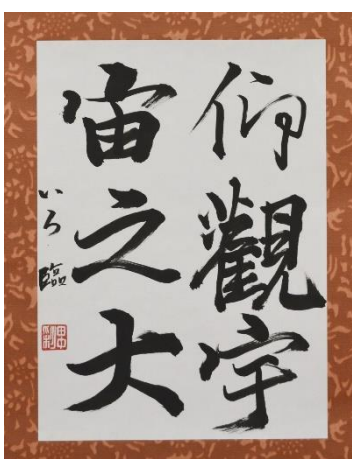 仰觀宇
宙之大
いろ臨